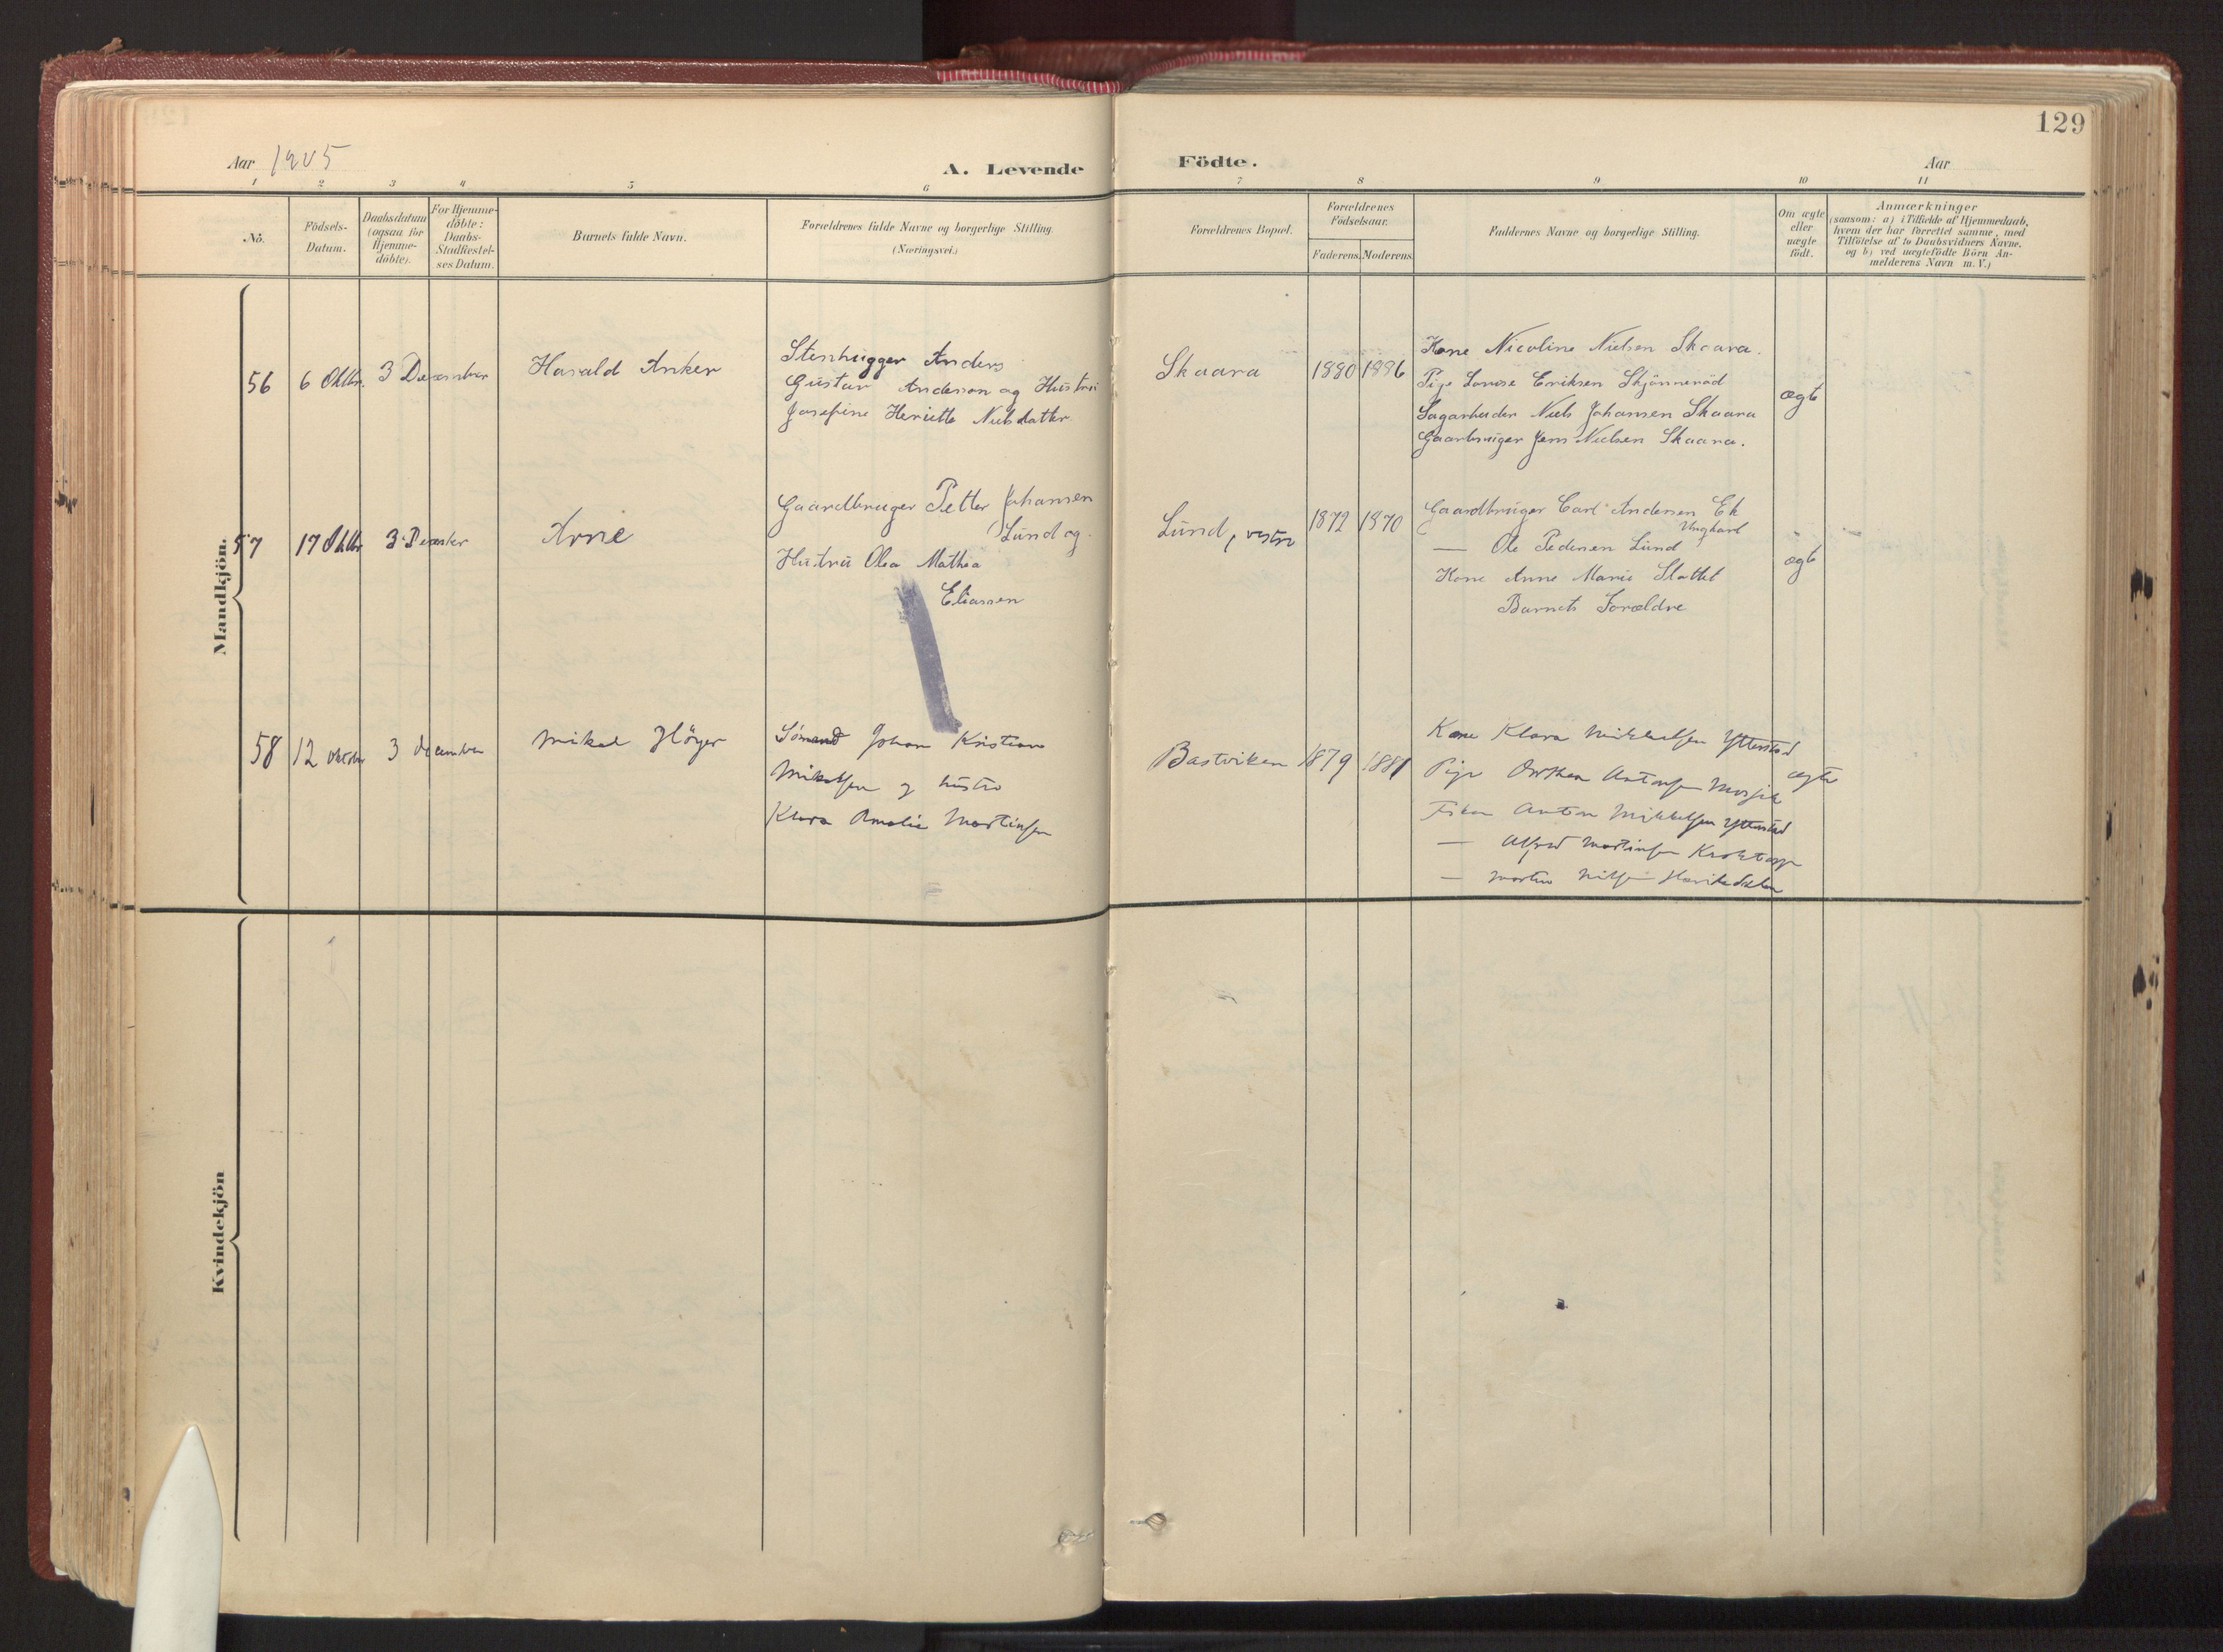 129
Aar 1905
A. Levende Födte.
Aar
1 2 3 4 5 6 7 8 9 10 11
No.
Födsels-Datum.
Daabsdatum (ogsaa for Hjemme-döbte).
For Hjemme-döbte: Daabs-Stadfestel-ses Datum.
Barnets fulde Navn.
Forældrenes fulde Navne og borgerlige Stilling.
(Næringsvei.)
Forældrenes Bopæl.
Forældrenes Födselsaar.
Faderens. Moderens.
Faddernes Navne og borgerlige Stilling.
Om ægte eller uægte födt.
Anmærkninger
(saasom: a) i Tilfælde af Hjemmedaab,
hvem der har forrettet samme, med
Tilföielse af to Daabsvidners Navne.
og b) ved uægtefödte Börn An-
melderens Navn m. V.)
Mandkjön.
56 6 Oktbr. 3 December Harald Anker
Stenhugger Anders
Gustav Anderson og Hustru
Josefine Heriette Nielsdatter.
Skaara 1880 1886
Kone Nicoline Nielsen Skaara.
Pige Lovise Eriksen Skjønneröd
Sagarbeider Niels Johansen Skaara
Gaarbruger Jens Nielsen Skaara.
ægte
57 17 Oktbr 3 December Arne
Gaardbruger Petter Johansen
Lund og
Hustru Olea Mathea
Eliassen
Lund, vestre 1872 1870
Gaardbruger Carl Andersen Ek
Ungkarl
— Ole Pedersen Lund
Kone Anne Marie Slottet
Barnets Forældre
ægte
58 12 oktober 3 december Mikal Höyer
Sömand Johan Kristian
Mikalsen og hustro
Klara Amalie Martinsen
Bastviken 1879 1881
Kone Klara Mikkelsen Ytterstad
Pige Antonsen
Fisker Anton Mikkelsen Ytterstad
— Alfred Martinsen
— Martin Nilsen
ægte
Kvindekjön